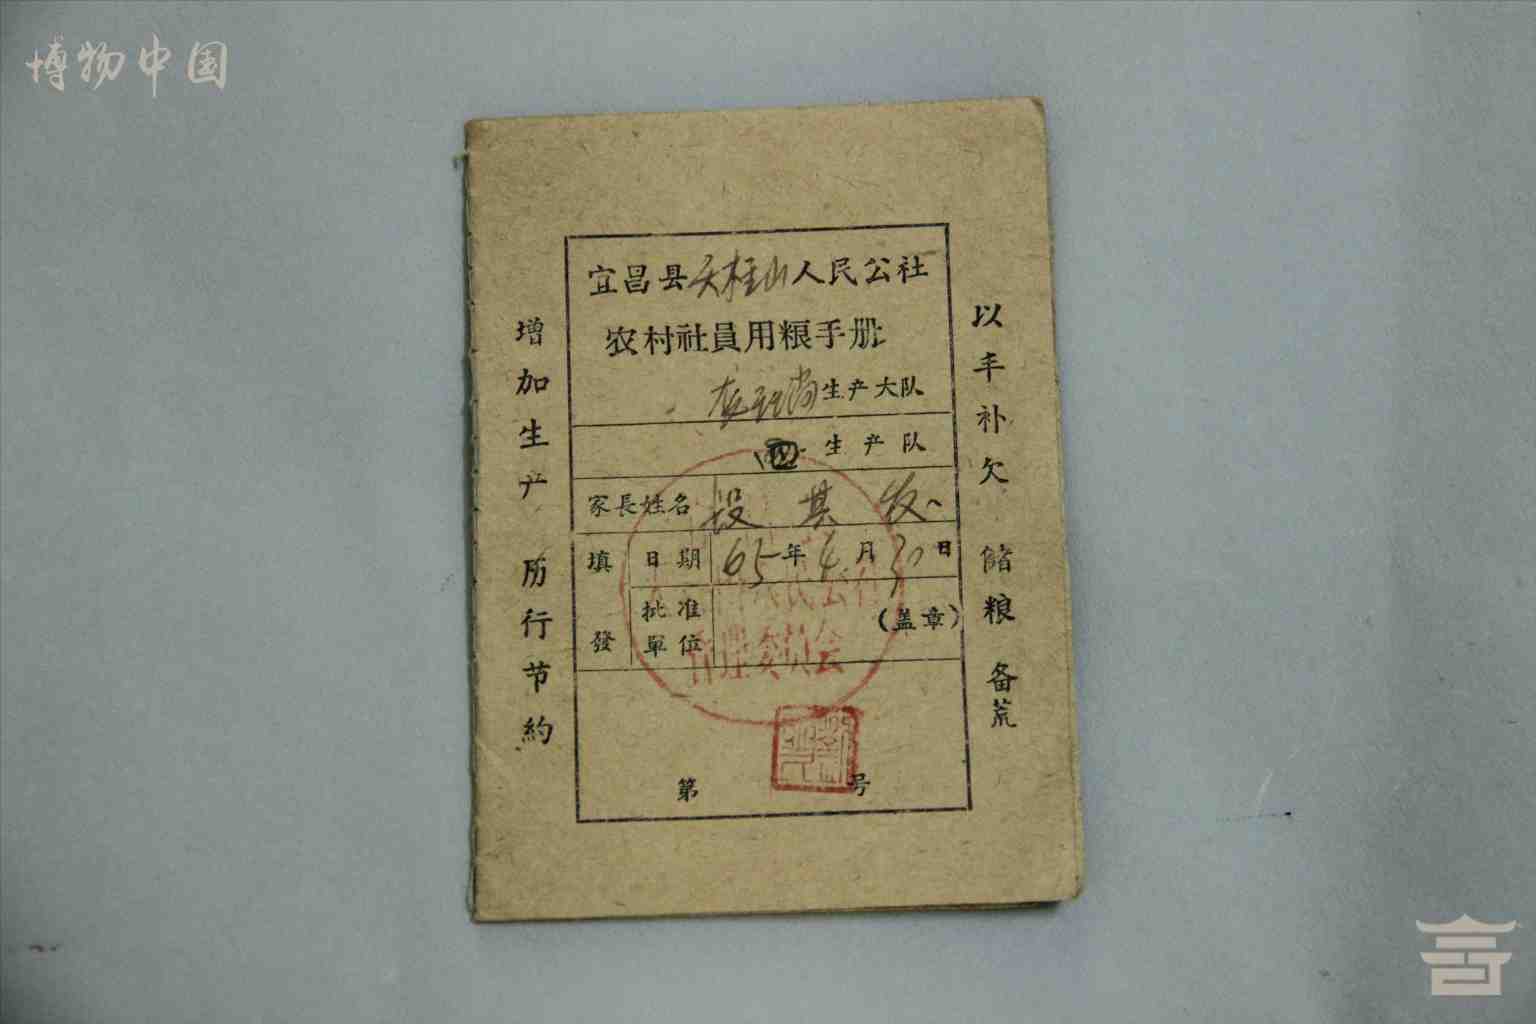 博物中国
宜昌县天柱山人民公社
农村社員用粮手册
生产大队
四生产队
家長姓名 段其发
填發 日期 65年4月30日
批准單位 (盖章)
管理委员会
第 号
增加生产 厉行节約
以丰补欠 储粮备荒